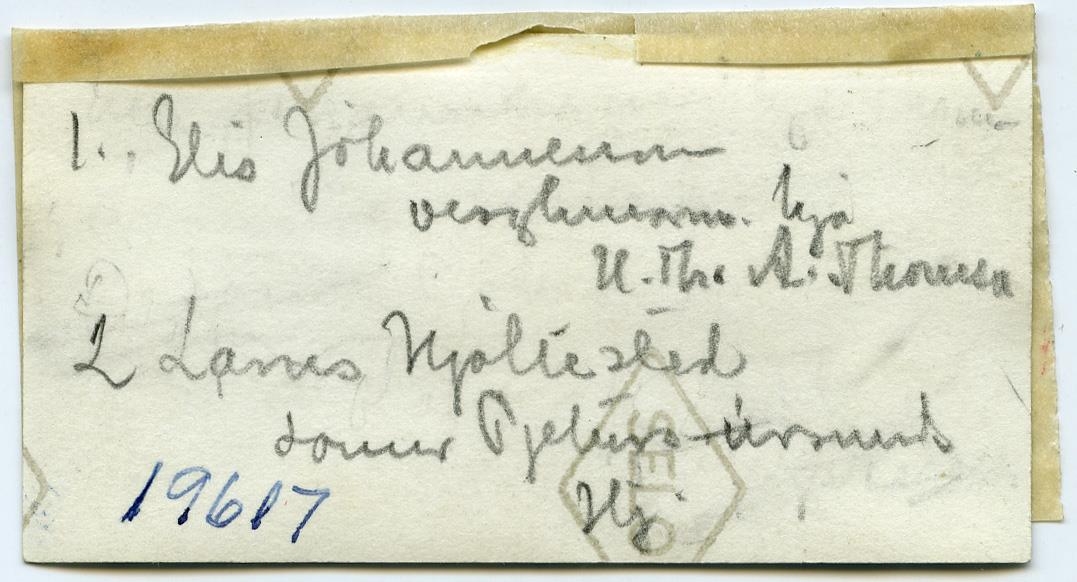 1. Elis Jóhannesson
verzlunarm. hjá
H. Th. A. Thomsen
2 Lárus Hjaltested
sonur Pjeturs úrsmiðs
Hj
19617
SELO